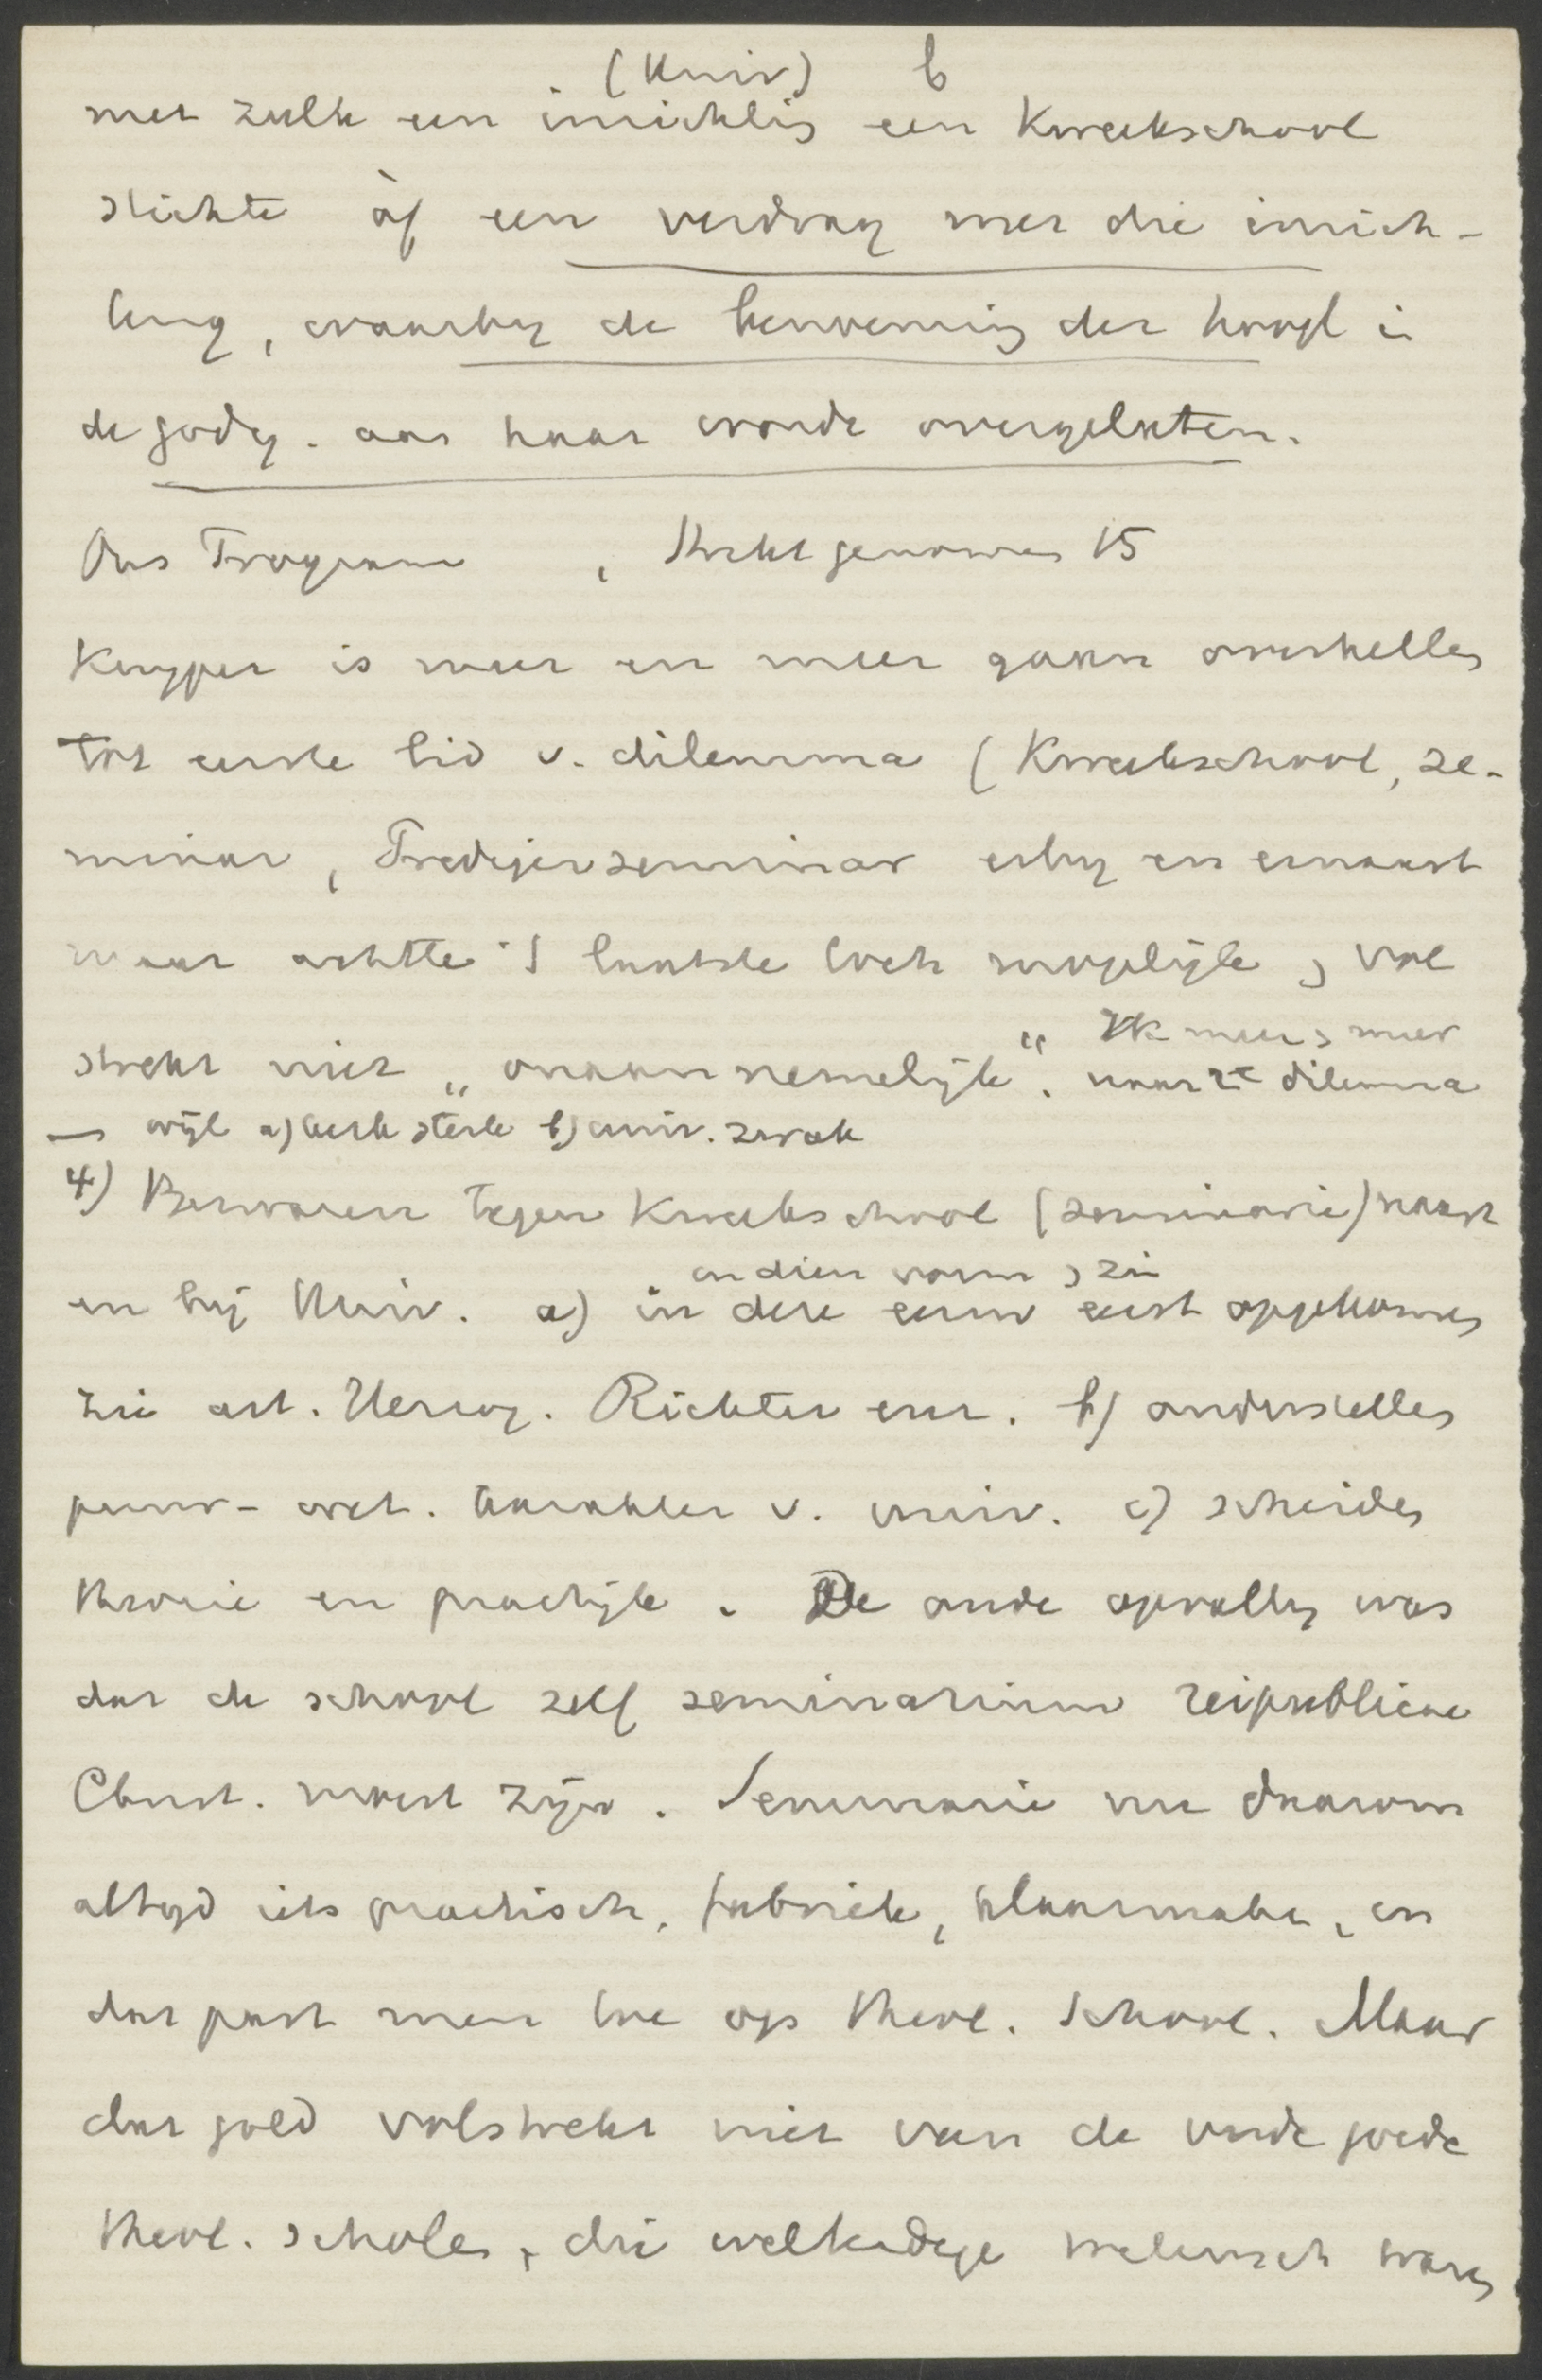 (Univ) b
met zulk een inrichting een Kweekschool
stichte òf een verdrag met die inrich-
ting, waarby de benoeming der hoogl in
de godg. aan haarworde overgelaten.
Ons Program , Strikt genomen 15
Kuyper is meer en meer gaan overhellen
tot eerste lid v. dilemma (Kweekschool, se-
minar, Predigerseminar erby en ernaast
maar achtte 't laatste toch mogelijk, vol
strekt niet „onaannemelijk". Ik meer meer
naar 2e dilemma
wijl a) kerk sterk b) univ. zwak
4) Bezwaren tegen Kweekschool (seminarie) naast
en bij Univ. a) in deze eeuw eerst opgekomen
in dien vorm, zie
zie art. Herzog. Richter enz. b) onderstellen
zuiv- wet. karakter v. univ. c) scheiden
theorie en practijk. De oude opvatting was
dat de school zelf seminarium reipublicae
Christ. moest zijn. Seminarie nu daarom
altyd iets practisch, fabriek, klaarmaken, en
dat past men toe op theol. school. Maar
dat gold volstrekt niet van de oude goede
theol. scholen, die welkedege wetensch waren